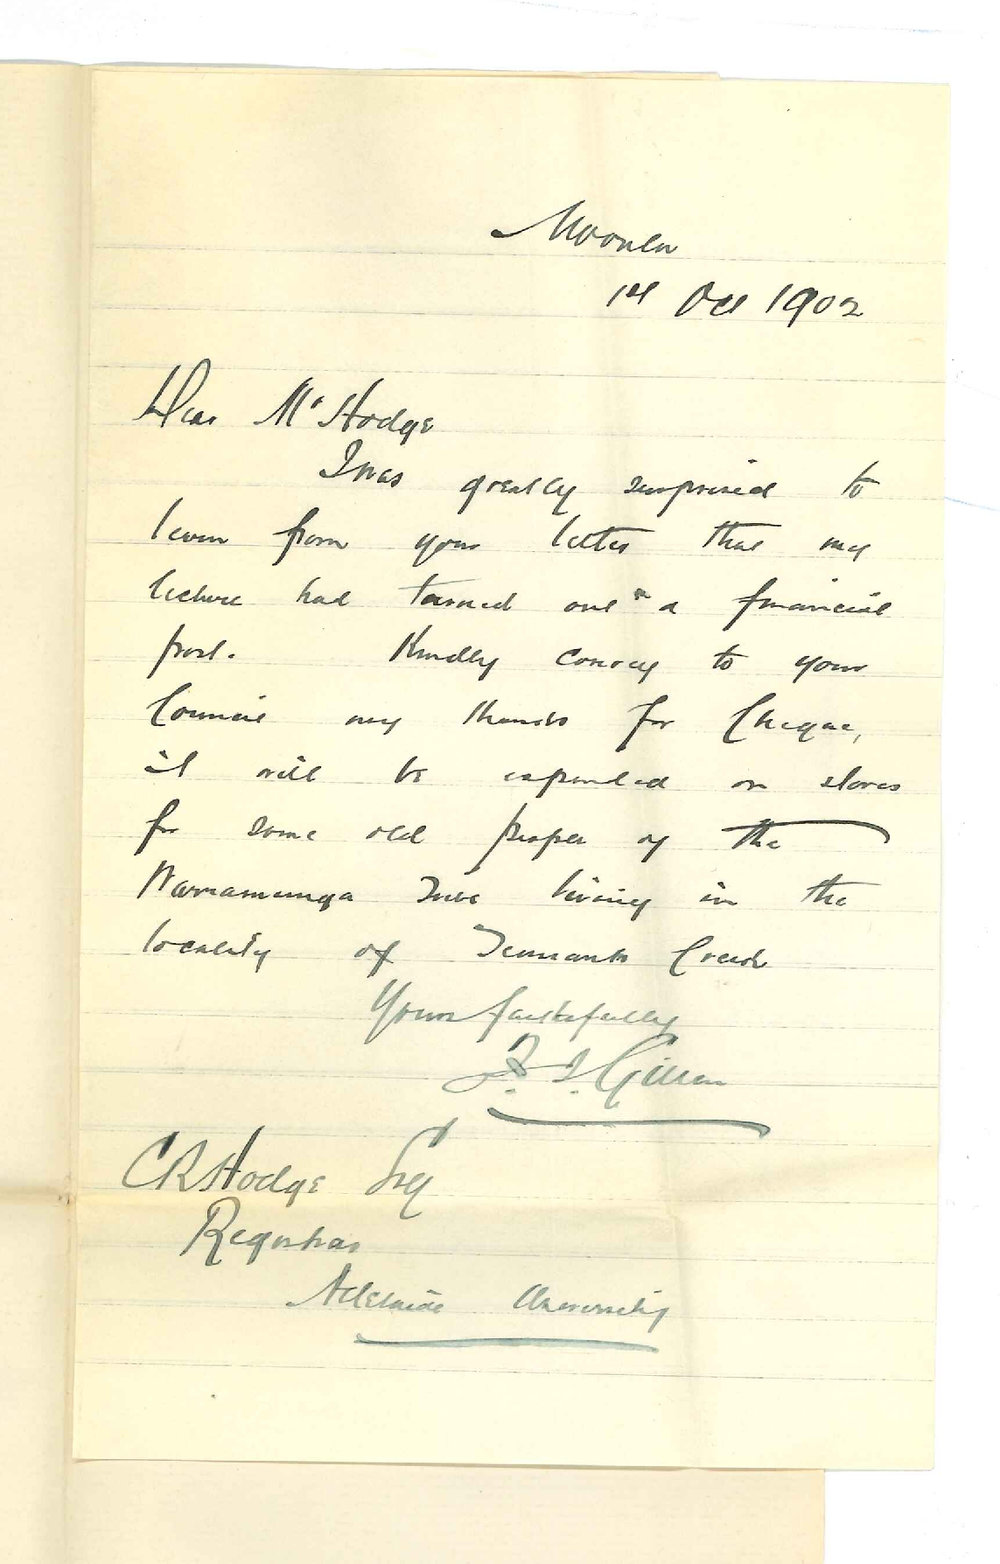 Moonta
1st Oct 1902
Dear Mr Hodge
I was greatly surprised to
learn from your letter that my
lecture had turned out a financial
frost. Kindly convey to your
Council my thanks for Cheque,
it will be expended on stores
for some old people of the
Warramunga Tribe living in the
locality of Tennants Creek
Yours faithfully
F. J. Gillen
C R Hodge Esq
Registrar
Adelaide University